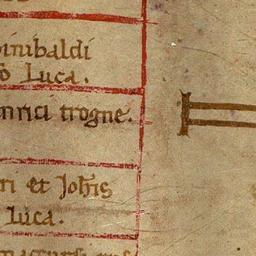 inibaldi
o Luca.
nrici trogne.
ri et Johis
Luca.